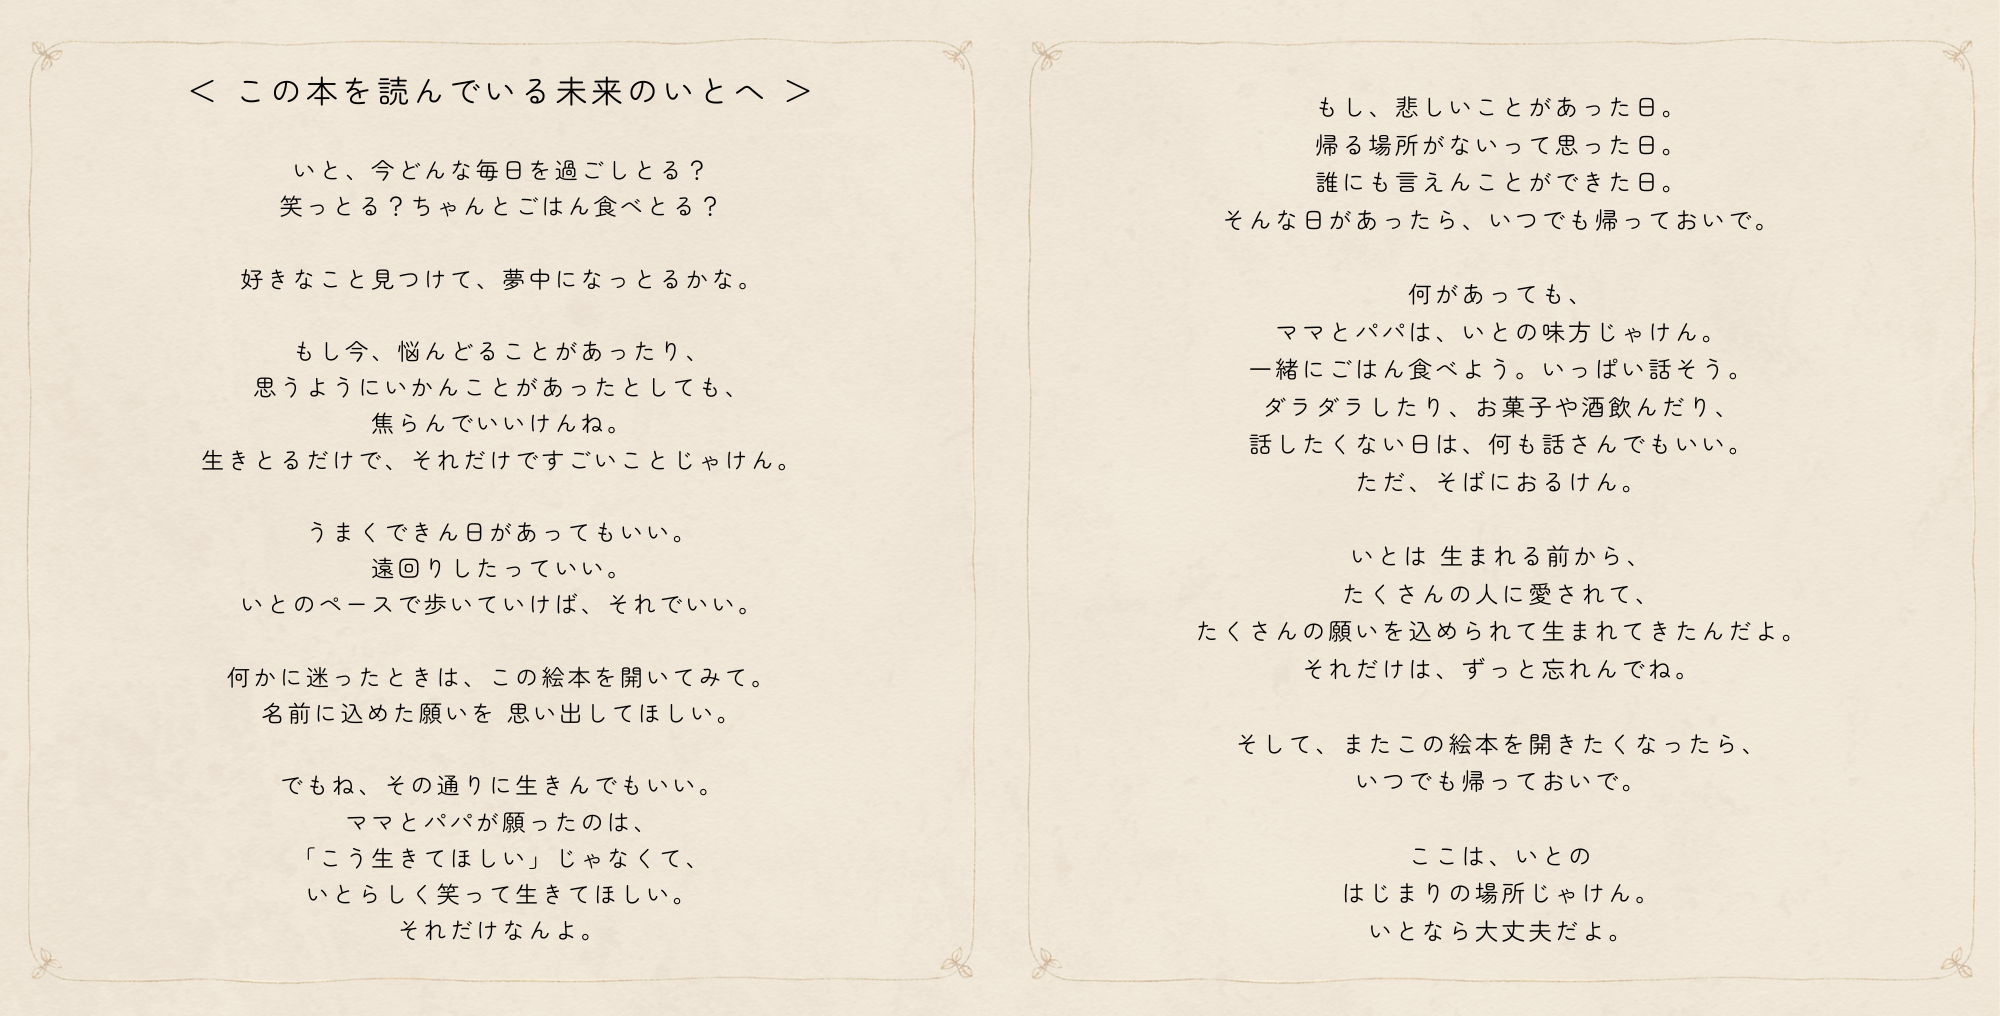 ＜ この本を読んでいる未来のいとへ ＞
いと、今どんな毎日を過ごしとる？
笑っとる？ちゃんとごはん食べとる？
好きなこと見つけて、夢中になっとるかな。
もし今、悩んどることがあったり、
思うようにいかんことがあったとしても、
焦らんでいいけんね。
生きとるだけで、それだけですごいことじゃけん。
うまくできん日があってもいい。
遠回りしたっていい。
いとのペースで歩いていけば、それでいい。
何かに迷ったときは、この絵本を開いてみて。
名前に込めた願いを 思い出してほしい。
でもね、その通りに生きんでもいい。
ママとパパが願ったのは、
「こう生きてほしい」じゃなくて、
いとらしく笑って生きてほしい。
それだけなんよ。
もし、悲しいことがあった日。
帰る場所がないって思った日。
誰にも言えんことができた日。
そんな日があったら、いつでも帰っておいで。
何があっても、
ママとパパは、いとの味方じゃけん。
一緒にごはん食べよう。いっぱい話そう。
ダラダラしたり、お菓子や酒飲んだり、
話したくない日は、何も話さんでもいい。
ただ、そばにおるけん。
いとは 生まれる前から、
たくさんの人に愛されて、
たくさんの願いを込められて生まれてきたんだよ。
それだけは、ずっと忘れんでね。
そして、またこの絵本を開きたくなったら、
いつでも帰っておいで。
ここは、いとの
はじまりの場所じゃけん。
いとなら大丈夫だよ。